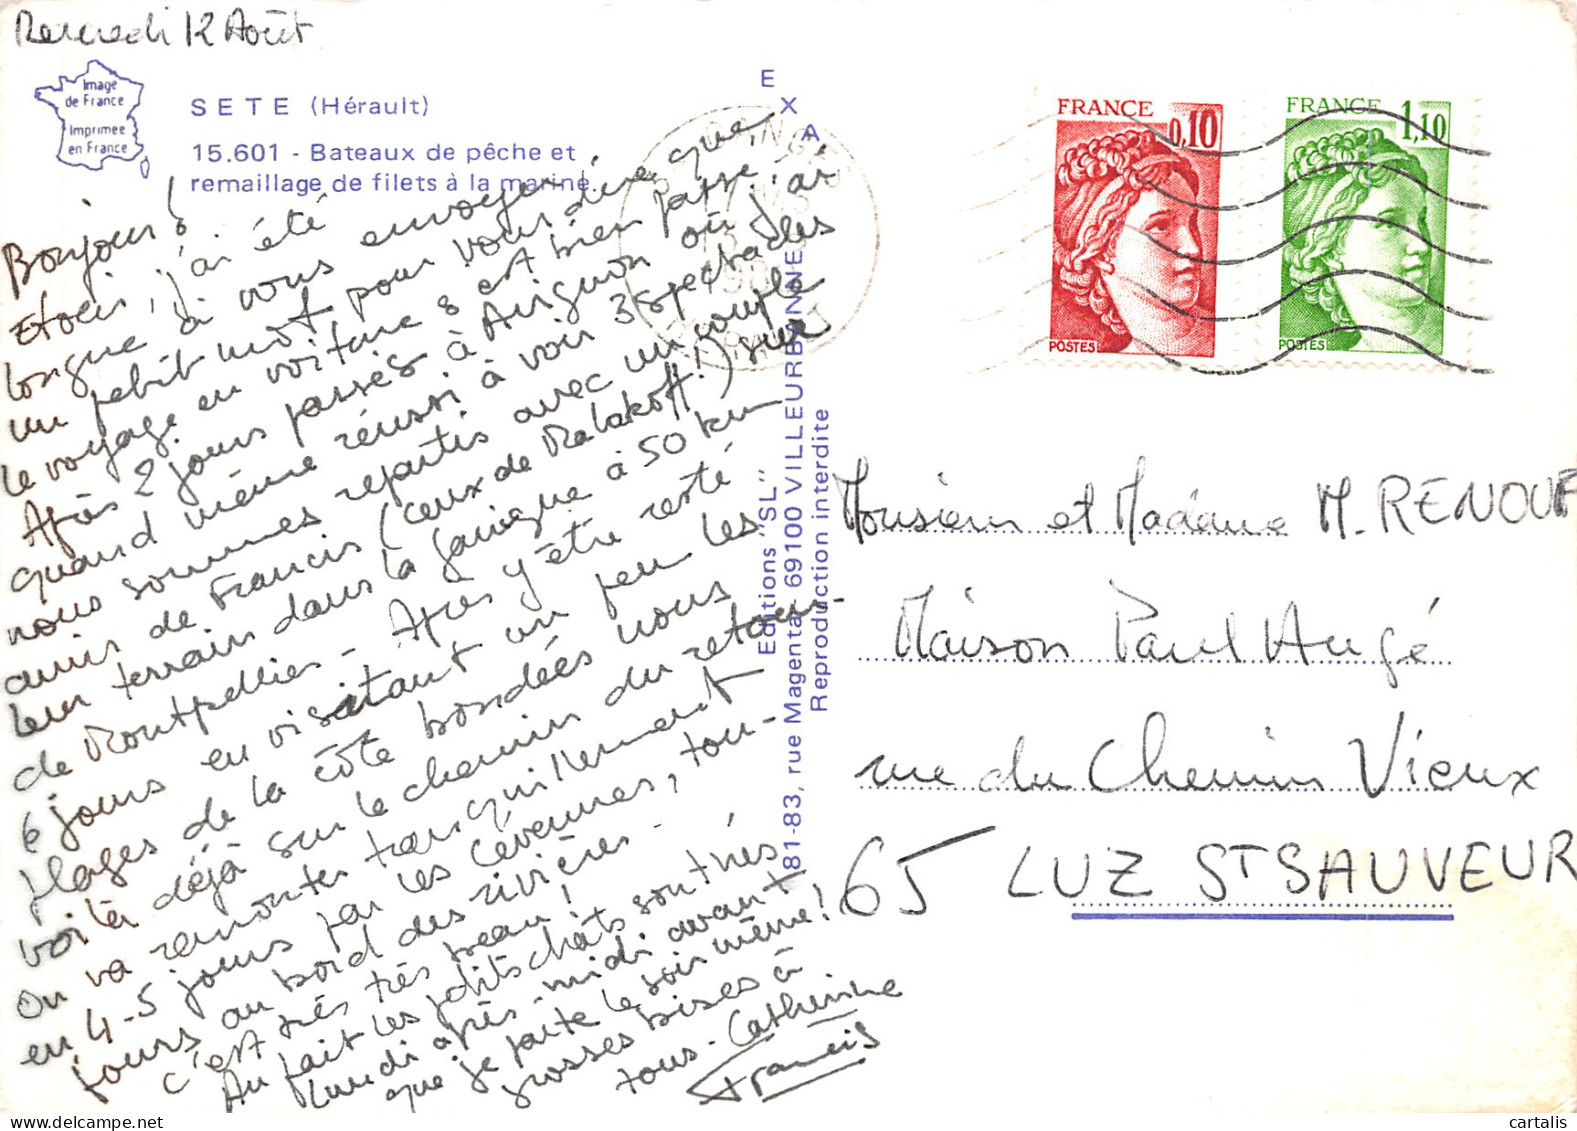 Mercredi 12 Août
Image
de France
Imprimée
en France
SETE (Hérault)
15.601 - Bateaux de pêche et
remaillage de filets à la marine.
Bonjour !
Et oui, j'ai été
longue à vous envoyer
un petit mot pour vous dire que
le voyage en voiture s'est bien passé.
Après 2 jours passés à Avignon où j'ai
quand même réussi à voir 3 spectacles
nous sommes repartis avec un couple
amis de Francis (ceux de Malakoff !) sur
leur terrain dans la garrigue à 50 km
de Montpellier - Après y être resté
6 jours en visitant un peu les
plages de la côte bondées nous
voilà déjà sur le chemin du retour -
On va remonter tranquillement
en 4-5 jours par les Cévennes, tou-
jours au bord des rivières -
c'est très très beau !
Au fait les petits chats sont nés
lundi après-midi avant
que je parte le soir même !
grosses bises à
tous - Catherine
Francis
EXA
Editions "SL"
81-83, rue Magenta - 69100 VILLEURBANNE
Reproduction interdite
FRANCE
0,10
POSTES
FRANCE
1,10
POSTES
Monsieur et Madame M. RENOUF
Maison Paul Augé
rue du Chemin Vieux
65 LUZ ST SAUVEUR
cartalis